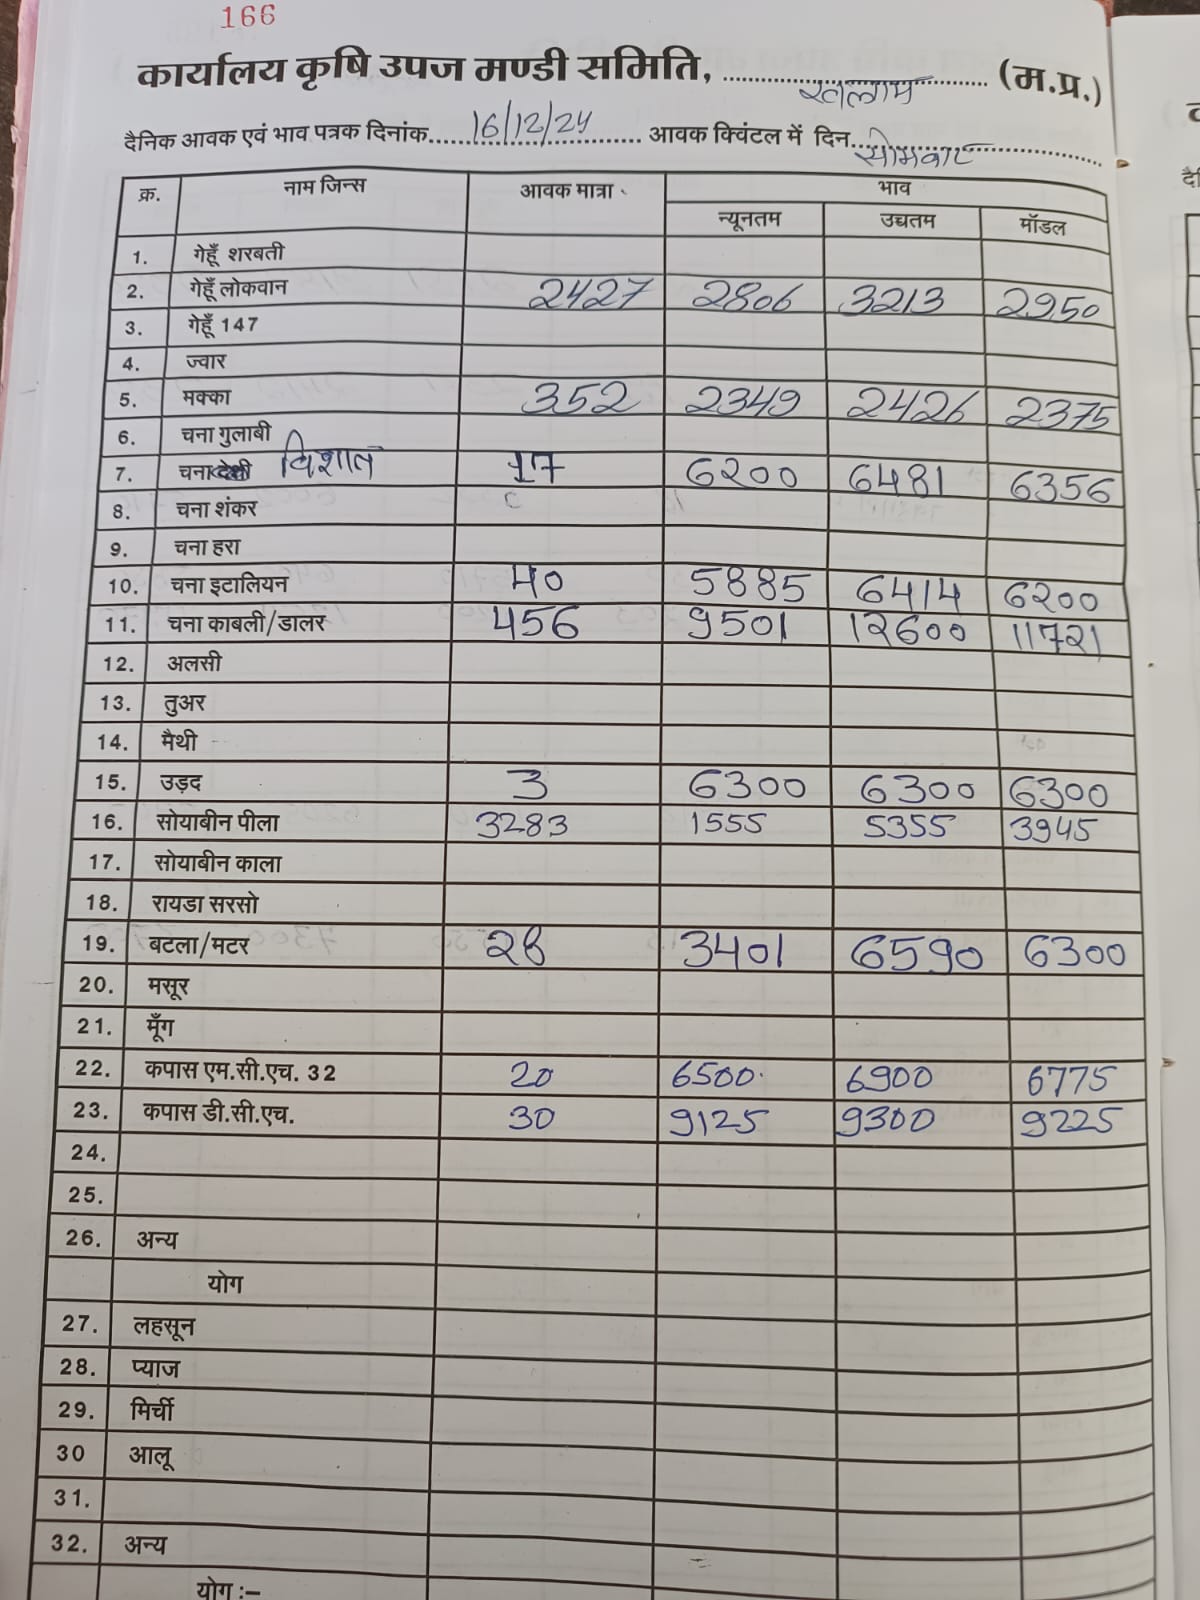 166
कार्यालय कृषि उपज मण्डी समिति, रतलाम (म.प्र.)
दैनिक आवक एवं भाव पत्रक दिनांक 16/12/24 आवक क्विंटल में दिन सोमवार
क्र. नाम जिन्स आवक मात्रा भाव
न्यूनतम उच्चतम मॉडल
1. गेहूँ शरबती
2. गेहूँ लोकवान 2427 2806 3213 2950
3. गेहूँ 147
4. ज्वार
5. मक्का 352 2349 2426 2375
6. चना गुलाबी
7. चना देशी विशाल 17 6200 6481 6356
8. चना शंकर
9. चना हरा
10. चना इटालियन 40 5885 6414 6200
11. चना काबली/डालर 456 9501 12600 11721
12. अलसी
13. तुअर
14. मैथी
15. उड़द 3 6300 6300 6300
16. सोयाबीन पीला 3283 1555 5355 3945
17. सोयाबीन काला
18. रायडा सरसो
19. बटला/मटर 28 3401 6590 6300
20. मसूर
21. मूँग
22. कपास एम.सी.एच. 32 20 6500 6900 6775
23. कपास डी.सी.एच. 30 9125 9300 9225
24.
25.
26. अन्य
योग
27. लहसून
28. प्याज
29. मिर्ची
30 आलू
31.
32. अन्य
योग :–